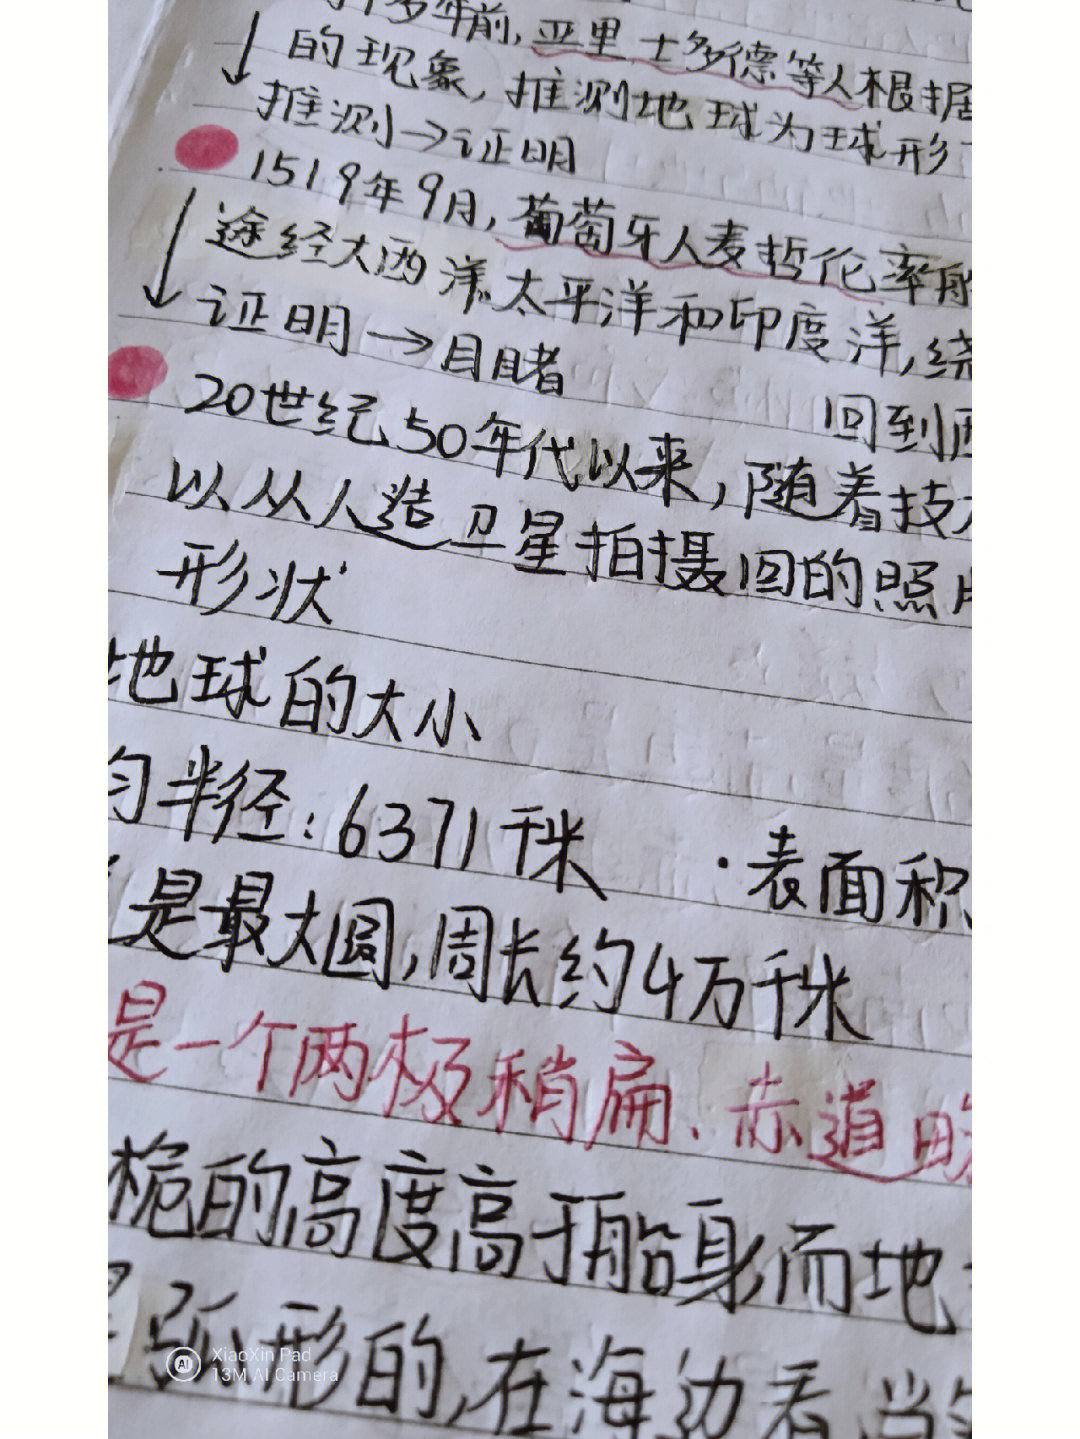 多年前,亚里士多德等人根据
的现象,推测地球为球形
推测→证明
1519年9月,葡萄牙人麦哲伦率船
途经大西洋、太平洋和印度洋,绕
证明→目睹
回到西
20世纪50年代以来,随着技
以从人造卫星拍摄回的照片
形状
地球的大小
匀半径:6371千米 ·表面积
是最大圆,周长约4万千米
是一个两极稍扁、赤道略
桅的高度高于船身,而地
弧形的,在海边看,当
XiaoXin Pad
13M AI Camera